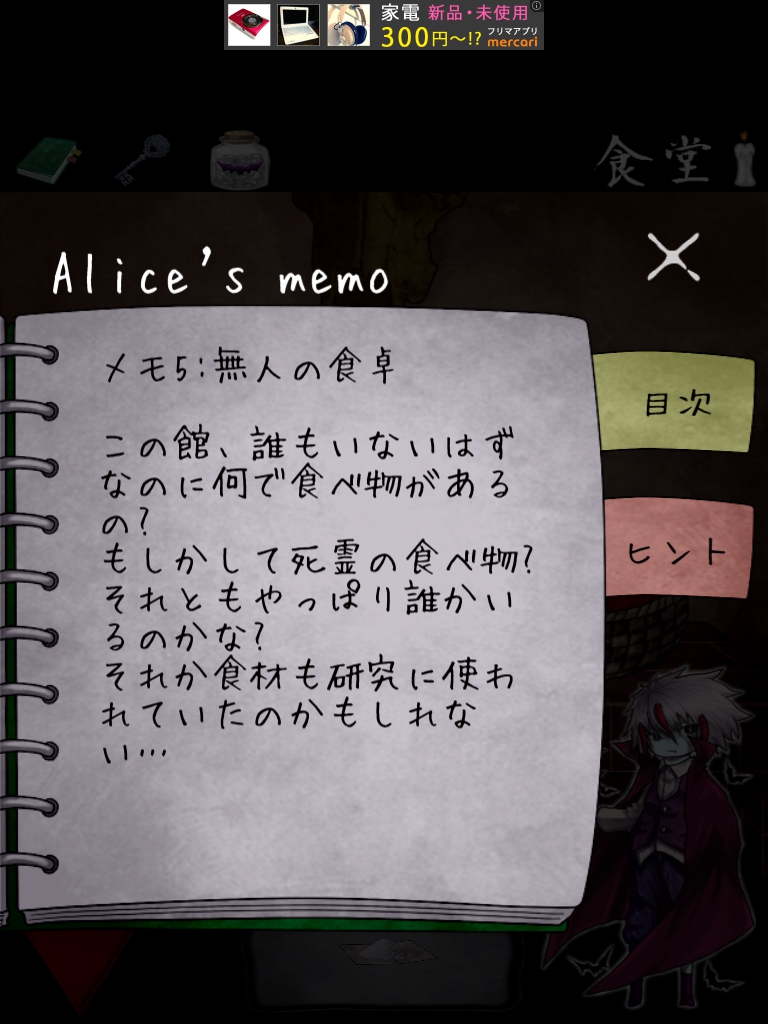 家電 新品・未使用
300円〜!? フリマアプリ
mercari
食堂
Alice's memo
メモ5:無人の食卓
この館、誰もいないはず
なのに何で食べ物がある
の?
もしかして死霊の食べ物?
それともやっぱり誰かい
るのかな?
それか食材も研究に使わ
れていたのかもしれな
い…
目次
ヒント